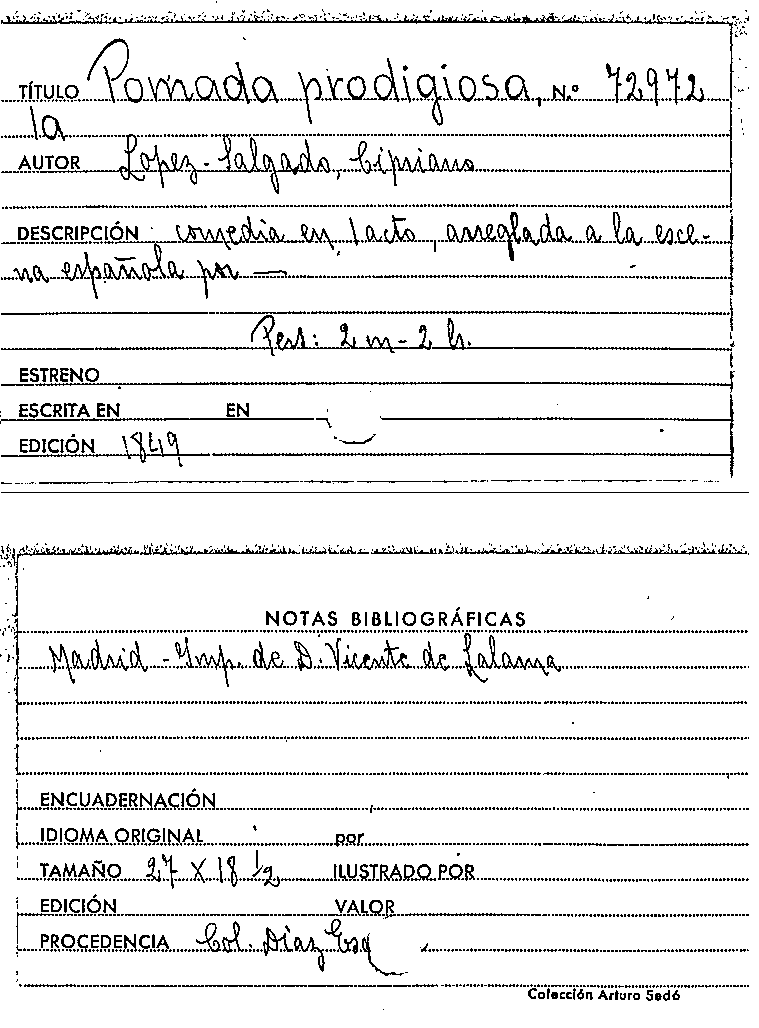 TÍTULO Pomada prodigiosa, N.º 72972
la
AUTOR Lopez-Salgado, Cipriano
DESCRIPCIÓN comedia en 1 acto, arreglada a la esce-
na española por —
Pers: 2 m - 2 h.
ESTRENO
ESCRITA EN EN
EDICIÓN 1849
NOTAS BIBLIOGRÁFICAS
Madrid - Imp. de D. Vicente de Lalama
ENCUADERNACIÓN
IDIOMA ORIGINAL por
TAMAÑO 27 X 18 1/2 ILUSTRADO POR
EDICIÓN VALOR
PROCEDENCIA Col. Díaz Esq
Colección Arturo Sedó